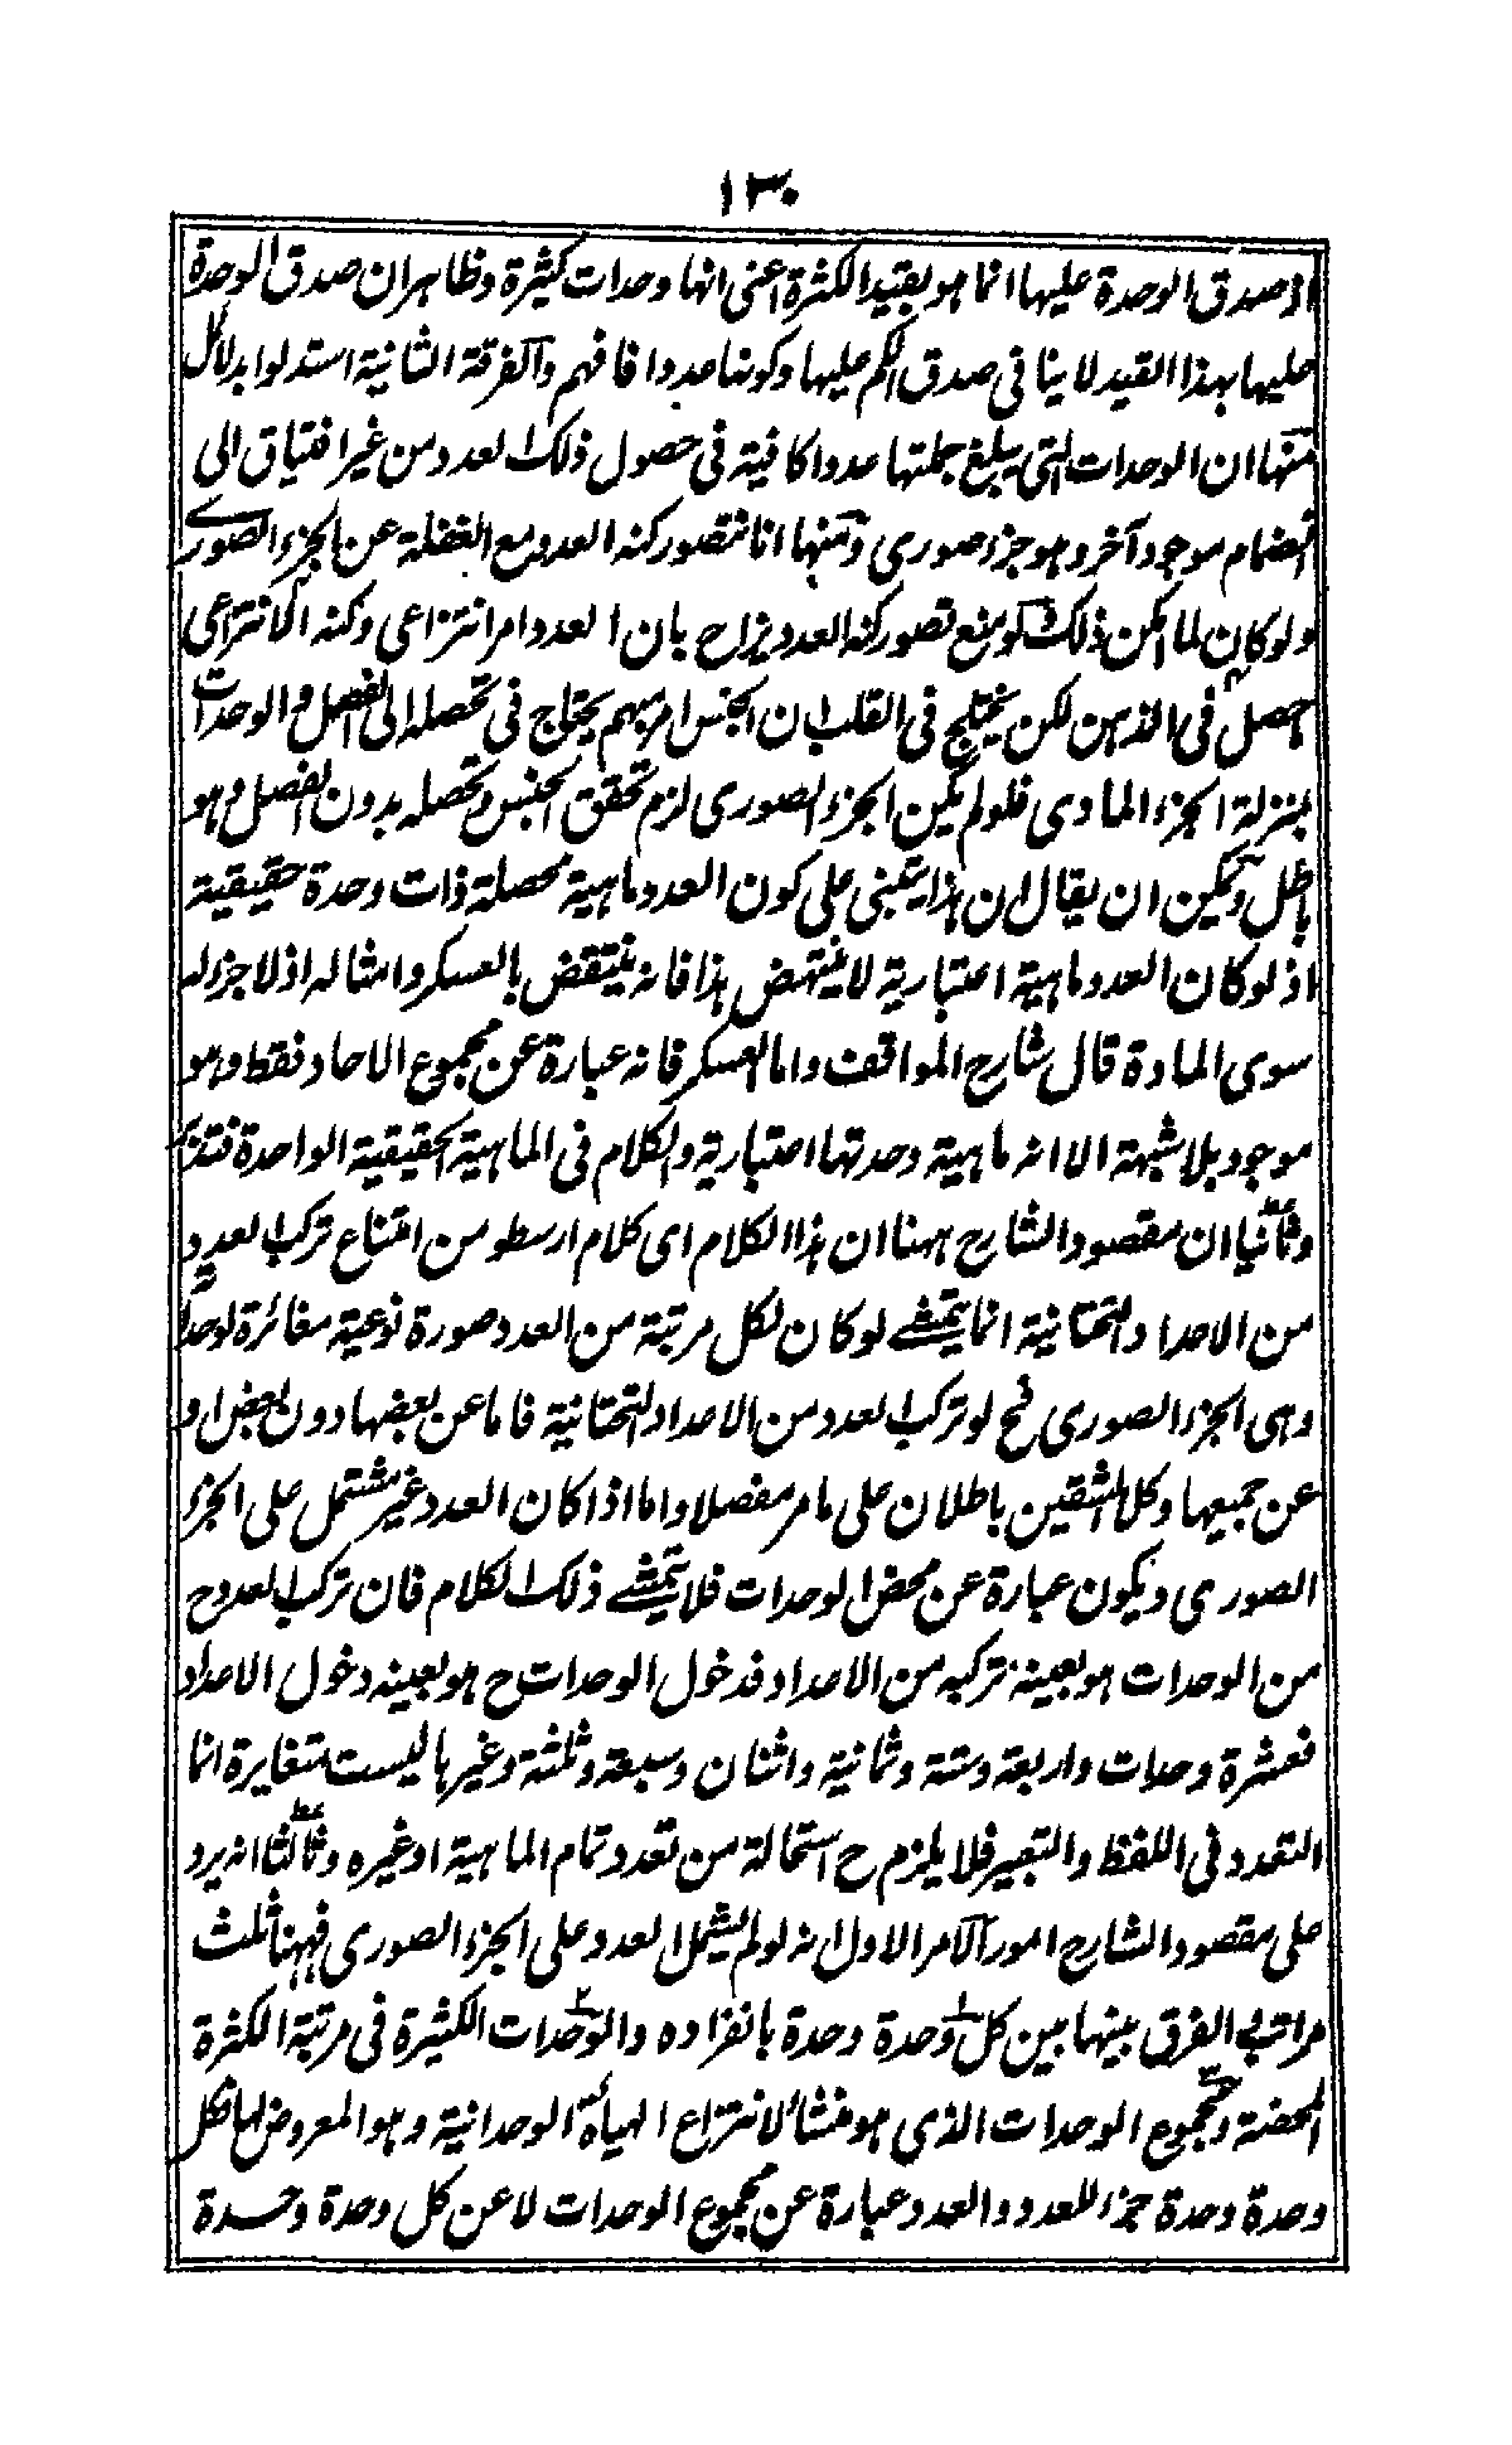 ١٣٠
اذ صدق الوحدة عليها انما هو بقيد الكثرة اعنى انها وحدات كثيرة وظاهر ان صدق الوحدة
عليها بهذا القيد لا ينافى صدق الكم عليها وكونها عددا فافهم والفرقة الثانية استدلوا بدلائل
منها ان الوحدات التى يبلغ جملتها عددا كافية فى حصول ذلك العدد من غير افتياق الى
انضمام موجود آخر وهو جزء صورى ومنها انا نتصور كنه العدد مع الغفلة عن الجزء الصورى
ولو كان لما امكن ذلك ومنع تصور كنه العدد يزاح بان العدد امر انتزاعى وكنه الانتزاعى
حصل فى الذهن لكن يختلج فى القلب ان الجنس امر مبهم يحتاج فى تحصله الى الفصل والوحدات
بمنزلة الجزء المادى فلو لم يكن الجزء الصورى لزم تحقق الجنس وتحصله بدون الفصل وهو
باطل ويمكن ان يقال ان هذا يبتنى على كون العدد ماهية محصلة ذات وحدة حقيقية
اذ لو كان العدد ماهية اعتبارية لا ينتهض هذا فانه ينتقض بالعسكر وامثاله اذ لا جزء له
سوى المادة قال شارح المواقف واما العسكر فانه عبارة عن مجموع الاحاد فقط وهو
موجود بلا شبهة الا انه ماهية وحدتها اعتبارية والكلام فى الماهية الحقيقية الواحدة فتدبر
وثانيا ان مقصود الشارح ههنا ان هذا الكلام اى كلام ارسطو من امتناع تركب العدد
من الاعداد التحتانية انما يتمشے لو كان لكل مرتبة من العدد صورة نوعية مغائرة لوحداتها
وهى الجزء الصورى فح لو تركب العدد من الاعداد التحتانية فاما عن بعضها دون بعض او
عن جميعها وكلا الشقين باطلان على ما مر مفصلا واما اذا كان العدد غير مشتمل على الجزء
الصورى ويكون عبارة عن محض الوحدات فلا يتمشے ذلك الكلام فان تركب العدد ح
من الوحدات هو بعينه تركبه من الاعداد فدخول الوحدات ح هو بعينه دخول الاعداد
فعشرة وحدات واربعة وستة وثمانية واثنان وسبعة وثلثة وغيرها ليست متغايرة انما
التعدد فى اللفظ والتعبير فلا يلزم ح استحالة من تعدد تمام الماهية او غيره وثالثا انه يرد
على مقصود الشارح امور الامر الاول انه لو لم يشمل العدد على الجزء الصورى فههنا ثلث
مراتب الفرق بينها بين كل وحدة وحدة بانفراده والوحدات الكثيرة فى مرتبة الكثرة
المحضة ومجموع الوحدات الذى هو منشأ لانتزاع الهيأة الوحدانية وهو المعروض لها فكل
وحدة وحدة جزء للعدد والعدد عبارة عن مجموع الوحدات لا عن كل وحدة وحدة